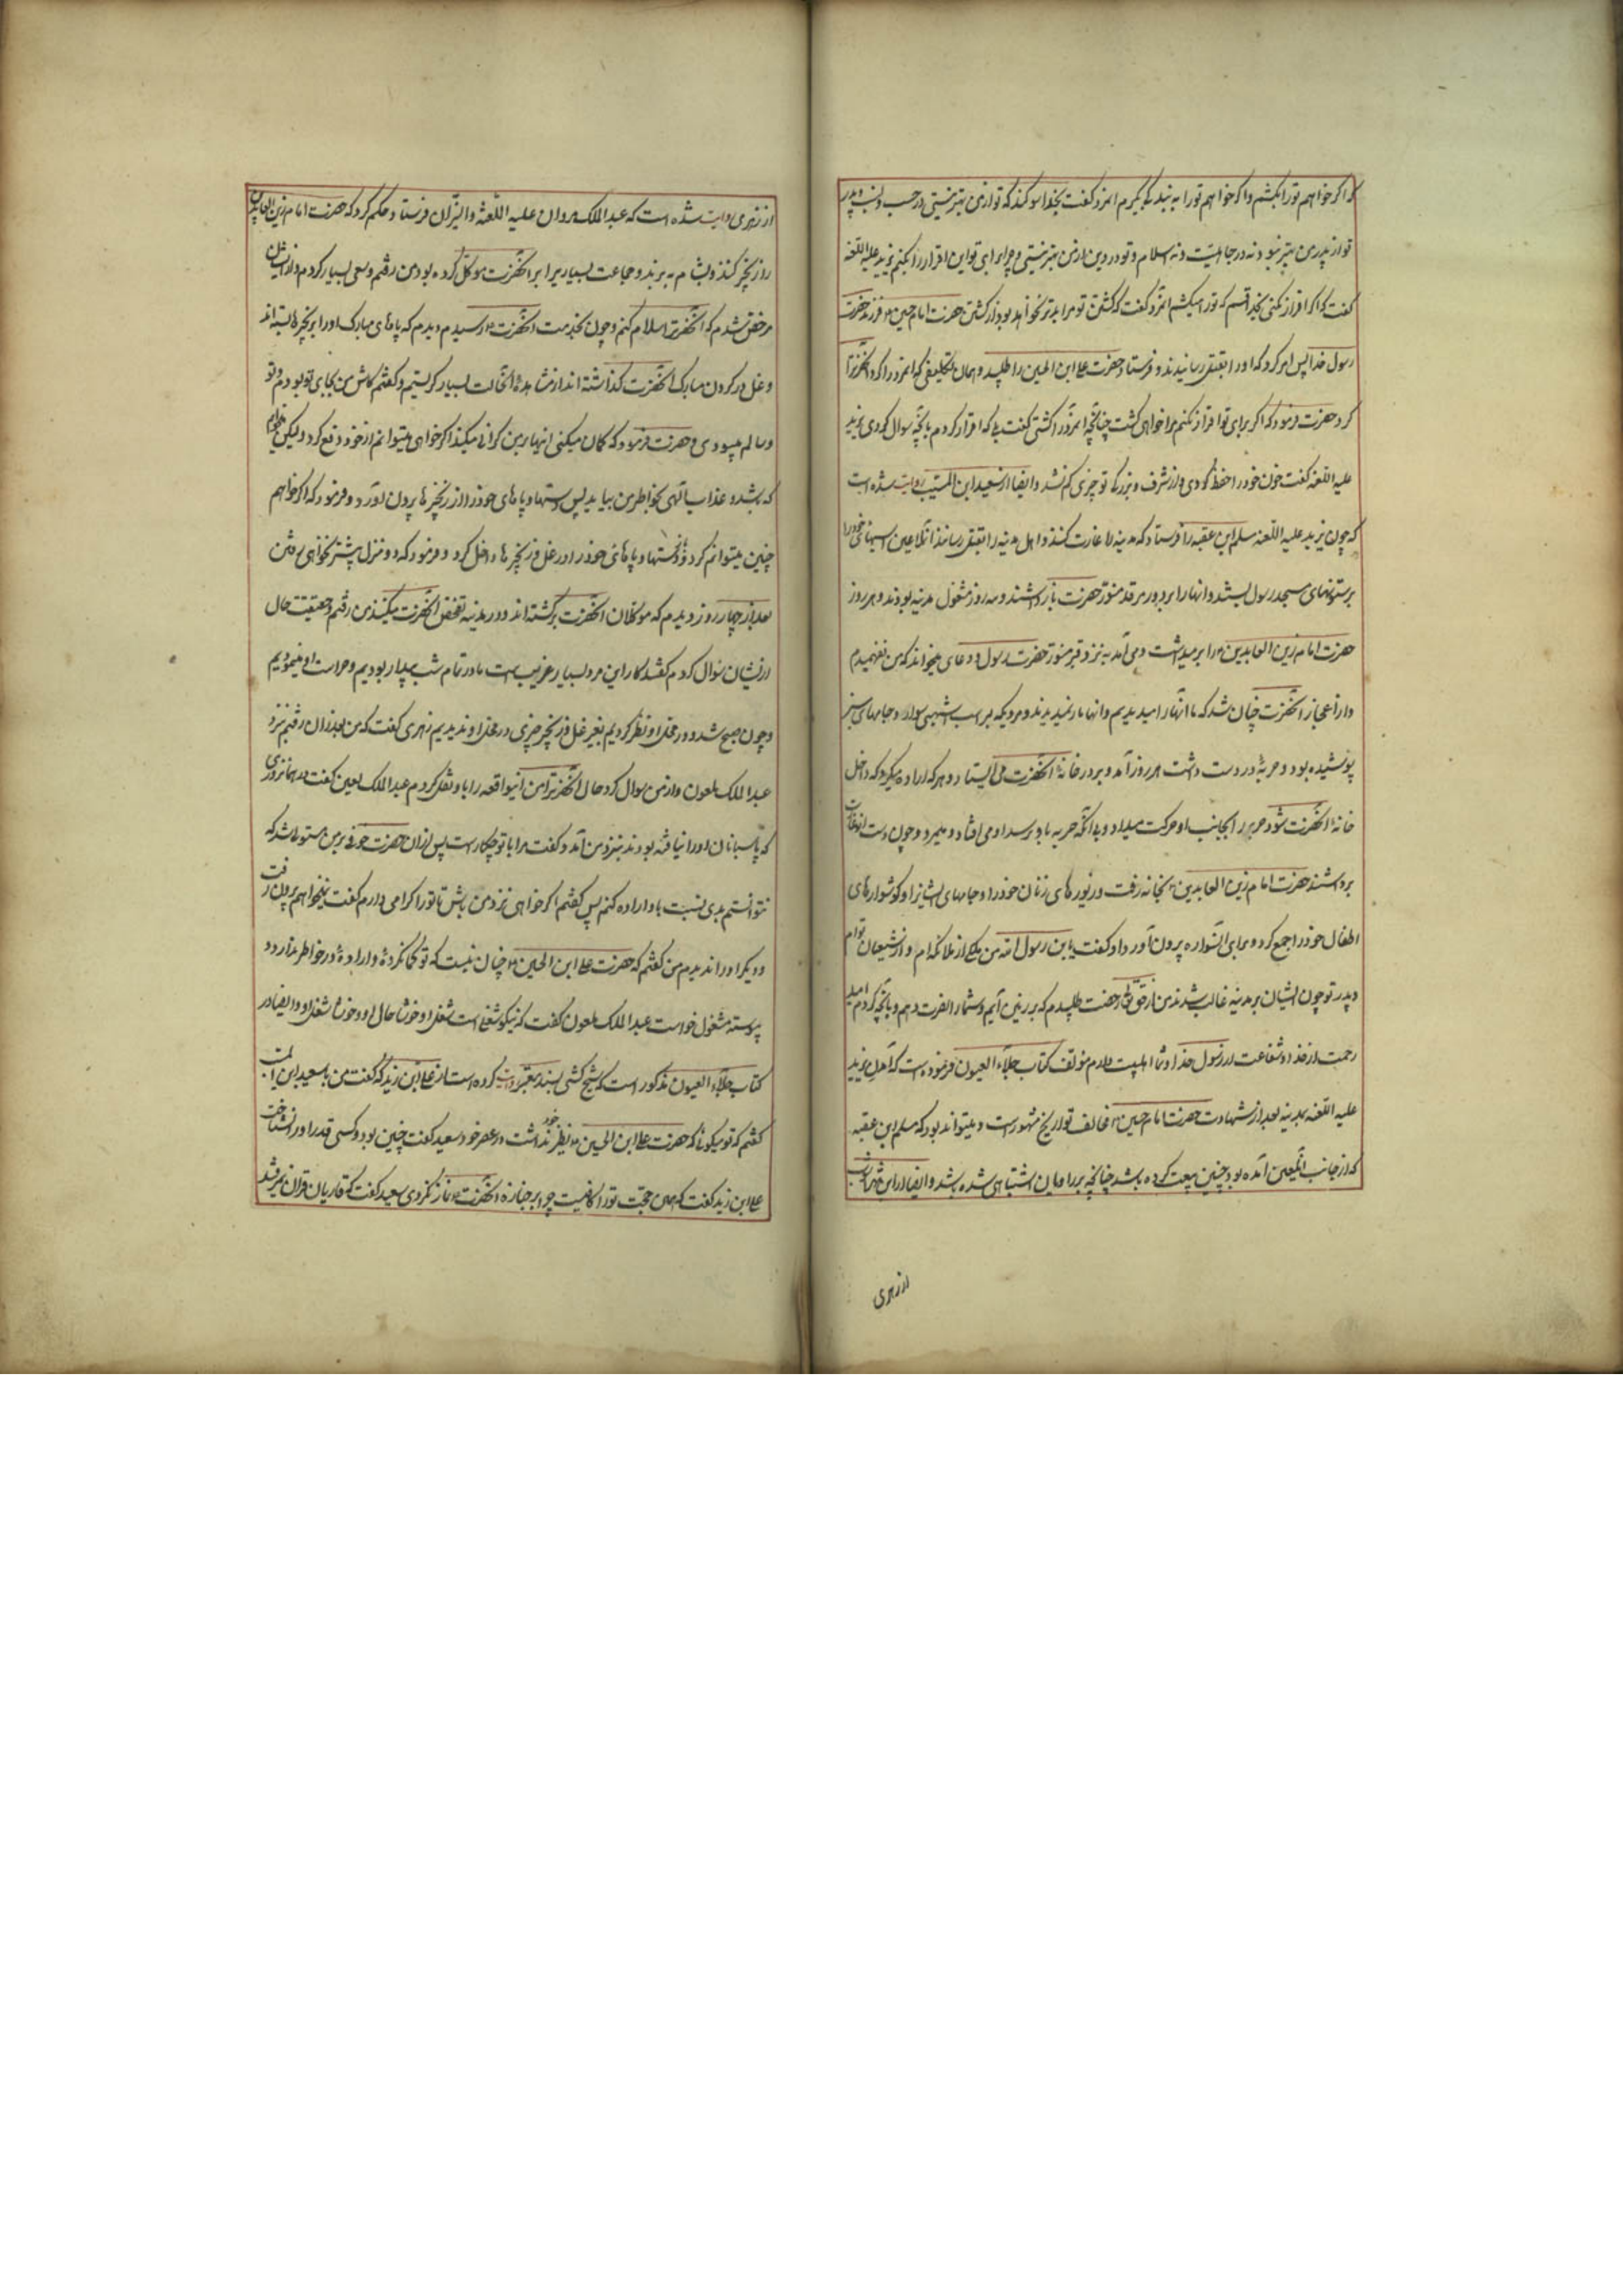 که اگر خواهم تورا بکشم و اگر خواهم تورا به بندگی بگیرم انمرد گفت بخدا سوکند که تو از من بهتر نیستی در حسب و نسب و پدر
تو از پدر من بهتر نبود نه در جاهلیت و نه اسلام و تو در دین از من بهتر نیستی و چرا برای تو این اقرار را بکنم یزید علیه اللعنه
گفت که اگر اقرار نکنی بخدا قسم که تورا میکشم انمرد گفت که کشتن تو مرا بدتر نخواهد بود از کشتن حضرت امام حسین فرزند حضرت
رسول خدا پس امر کرد که اورا بقتل رسانیدند و فرستاد و حضرت علی ابن الحسین را طلبید و همان تکلیفی که انمرد را کرد آنحضرترا
کرد حضرت فرمود که اگر برای تو اقرار نکنم مرا خواهی کشت چنانچه انمرد را کشتی گفت بلی که اقرار کردم بانچه سوال کردی یزید
علیه اللعنه گفت خون خود را حفظ کردی و از شرف و بزرگی تو چیزی کم نشد و ایضا از سعید ابن المسیب روایت شده است
که چون یزید علیه اللعنه مسلم ابن عقبه را فرستاد که مدینه را غارت کنند و اهل مدینه را بقتل رسانند انملاعین اسپهای خود را
بر ستونهای مسجد رسول بستند و انها را بر دور مرقد منور حضرت باز داشتند و سه روز مشغول مدینه بودند و هر روز
حضرت امام زین العابدین مرا بر میداشت و می آمد به نزد قبر منور حضرت رسول و دعای میخواند که من نفهمیدم
و از اعجاز آنحضرت چنان شد که ما انها را میدیدیم و انها ما را نمیدیدند و مردیکه بر اسب اشهبی سوار و جامهای سبز
پوشیده بود و حربهٔ در دست داشت هر روز آمد و بر در خانهٔ آنحضرت می ایستاد و هر که اراده میکرد که داخل
خانهٔ آنحضرت شود حربه را بجانب او حرکت میداد و بی انکه حربه باو برسد او می افتاد و میمرد و چون دست از غارت
برداشتند حضرت امام زین العابدین بخانه رفت و زیورهای زنان خود را و جامهای ایشانرا و کوشوارهای
اطفال خود را جمع کرد و برای انسواره بیرون آورد او گفت یا بن رسول الله من ملکی از ملائکه ام و از شیعیان توام
و پدر تو چون ایشان بر مدینه غالب شدند من از حق تعالی رخصت طلبیدم که بر زمین آیم و شما را نصرت دهم و بانچه کردم امید
رحمت از خدا و شفاعت از رسول خدا و شما اهلبیت دارم مؤلف کتاب جلاء العیون فرموده است که آمدن یزید
علیه اللعنه بمدینه بعد از شهادت حضرت امام حسین مخالف تواریخ مشهور است و میتواند بود که مسلم ابن عقبه
که از جانب انلعین آمده بود چنین بیعت کرده باشد چنانچه بر راویان اشتباهی شده باشد و ایضا از ابن شهراشوب
از زهری
از زهری روایت شده است که عبد الملک مروان علیه اللعنة والنیران فرستاد و حکم کرد که حضرت امام زین العابدین
را زنجیر کنند و بشام به برند و جماعت بسیار برا برانحضرت موکل کرده بود من رفتم و سعی بسیار کردم و از ایشان
مرخص شدم که آنحضرترا سلام کنم و چون بخدمت آنحضرت رسیدم دیدم که پاهای مبارک اورا بزنجیرها بسته اند
و غل در کردن مبارک آنحضرت کذاشته اند از مشاهدهٔ انحالت بسیار کریستم و گفتم کاش من بجای تو بودم و تو
سالم میبودی حضرت فرمود که کمان میکنی اینها بر من کرانی میکند اگر خواهی میتوانم از خود دفع کرد ولیکن میخواهم
که شدد عذاب الهی بخاطر من بیاید پس دستها و پاهای خود را از زنجیرها بیرون آورد و فرمود که اگر خواهم
چنین میتوانم کرد و دستها و پاهای خود را در غل و زنجیرها داخل کرد و فرمود که دو منزل بیشتر نخواهم رفتن
بعد از چهار روز دیدم که موکلان آنحضرت برگشته اند و در مدینه تفحص آنحضرت میکنند من رفتم و حقیقت حال
از ایشان سوال کردم گفتند کار این مرد بسیار غریب است ما در تمام شب بیدار بودیم و حراست او مینمودیم
و چون صبح شد و در محل او نظر کردیم بغیر غل و زنجیر چیزی در محل او ندیدیم زهری گفت که من بعد از ان رفتم نزد
عبد الملک ملعون و از من سوال کرد حال آنحضرترا من اینواقعه را باو نقل کردم عبد الملک لعین گفت در همانروزی
که پاسبانان اورا نیافته بودند بنزد من آمد و گفت مرا با تو چکار است پس از ان حضرت خوفی بر من مستولی شد که
نتوانستم بدی نسبت باو اراده کنم پس گفتم اگر خواهی نزد من باش تا تورا اکرامی دارم گفت نمیخواهم بیرون رفت
و دیکر اورا ندیدم من گفتم که حضرت علی ابن الحسین چنان نیست که تو کمان کردهٔ و ارادهٔ در خاطر ندارد و
پیوسته مشغول خود است عبد الملک ملعون گفت که نیکو شغلی است شغل او خوشا حال او و خوشا شغل او و ایضا در
کتاب جلاء العیون مذکور است که شیخ کشی بسند معتبر روایت کرده است از علی ابن زید که گفت من با سعید ابن المسیب
گفتم که تو میکوئی که حضرت علی ابن الحسین نظیر خود نداشت در عصر خود سعید گفت چنین بود و کسی قدر اورا نشناخت
علی ابن زید گفت که همین حجت تورا کافیست چرا بر جنازه آنحضرت نماز نکردی سعید گفت که قاریان قران نمیرفتند